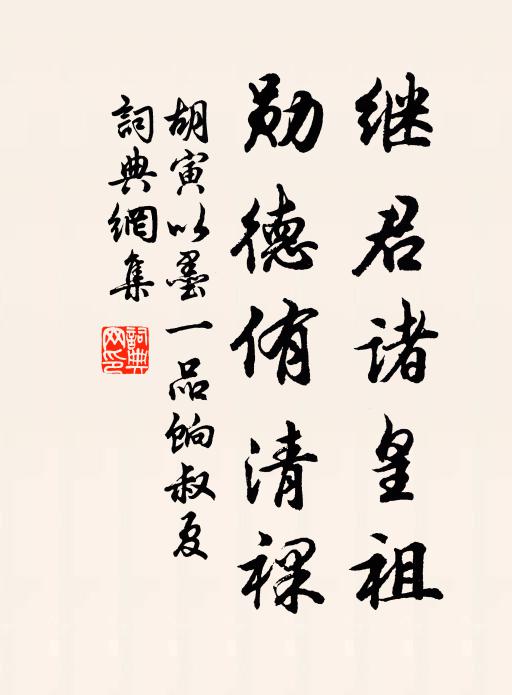 继君诸皇祖
勋德侑清祼
胡寅以墨一品饷叔夏
詞典網集
詞典网印